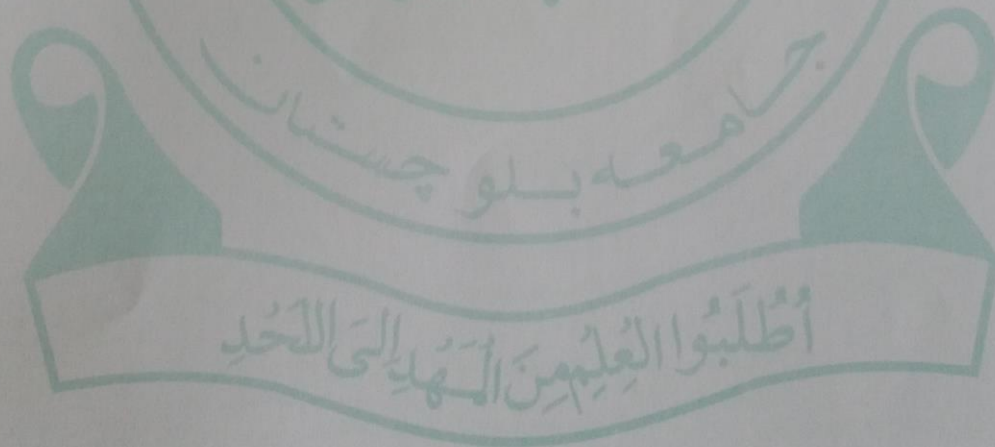 جامعہ بلوچستان
أُطْلَبُوا الْعِلْمِ مِنَ الْمَهْدِ إِلَى اللَّحْدِ